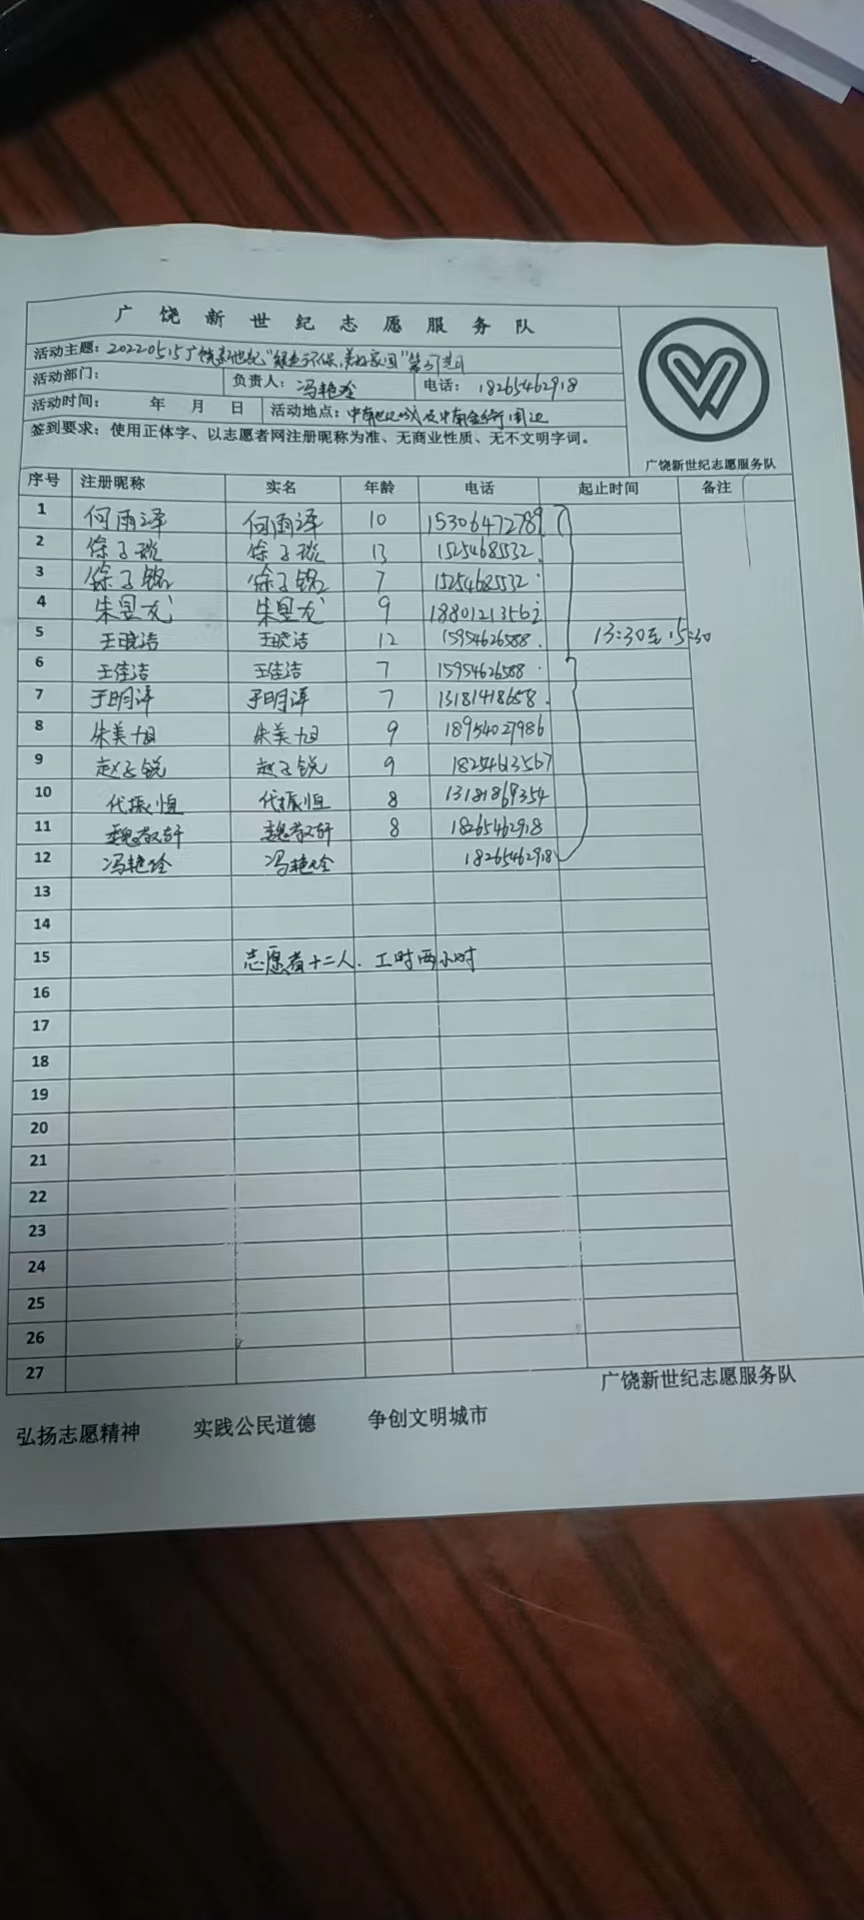 广饶新世纪志愿服务队
活动主题：20220515广饶新世纪"绿色环保,美好家园"第57期
活动部门： 负责人：冯艳玲 电话：18265462918
活动时间： 年 月 日 活动地点：中南世纪城及中南金街周边
签到要求：使用正体字、以志愿者网注册昵称为准、无商业性质、无不文明字词。
广饶新世纪志愿服务队
序号 注册昵称 实名 年龄 电话 起止时间 备注
1 何雨泽 何雨泽 10 15306472789
2 徐子琁 徐子琁 13 1525468532
3 徐子铭 徐子铭 7 1525468532
4 朱昱龙 朱昱龙 9
5 王晓洁 王晓洁 12 15954626588 13:30至15:30
6 王佳洁 王佳洁 7 15954626588
7 于明泽 于明泽 7 13181418658
8 朱美旭 朱美旭 9 18954027986
9 赵子锐 赵子锐 9 18254613567
10 代振恒 代振恒 8 13181869354
11 魏敬轩 魏敬轩 8 18265462918
12 冯艳玲 冯艳玲 18265462918
13
14
15 志愿者十二人．工时两小时
16
17
18
19
20
21
22
23
24
25
26
27
广饶新世纪志愿服务队
弘扬志愿精神 实践公民道德 争创文明城市